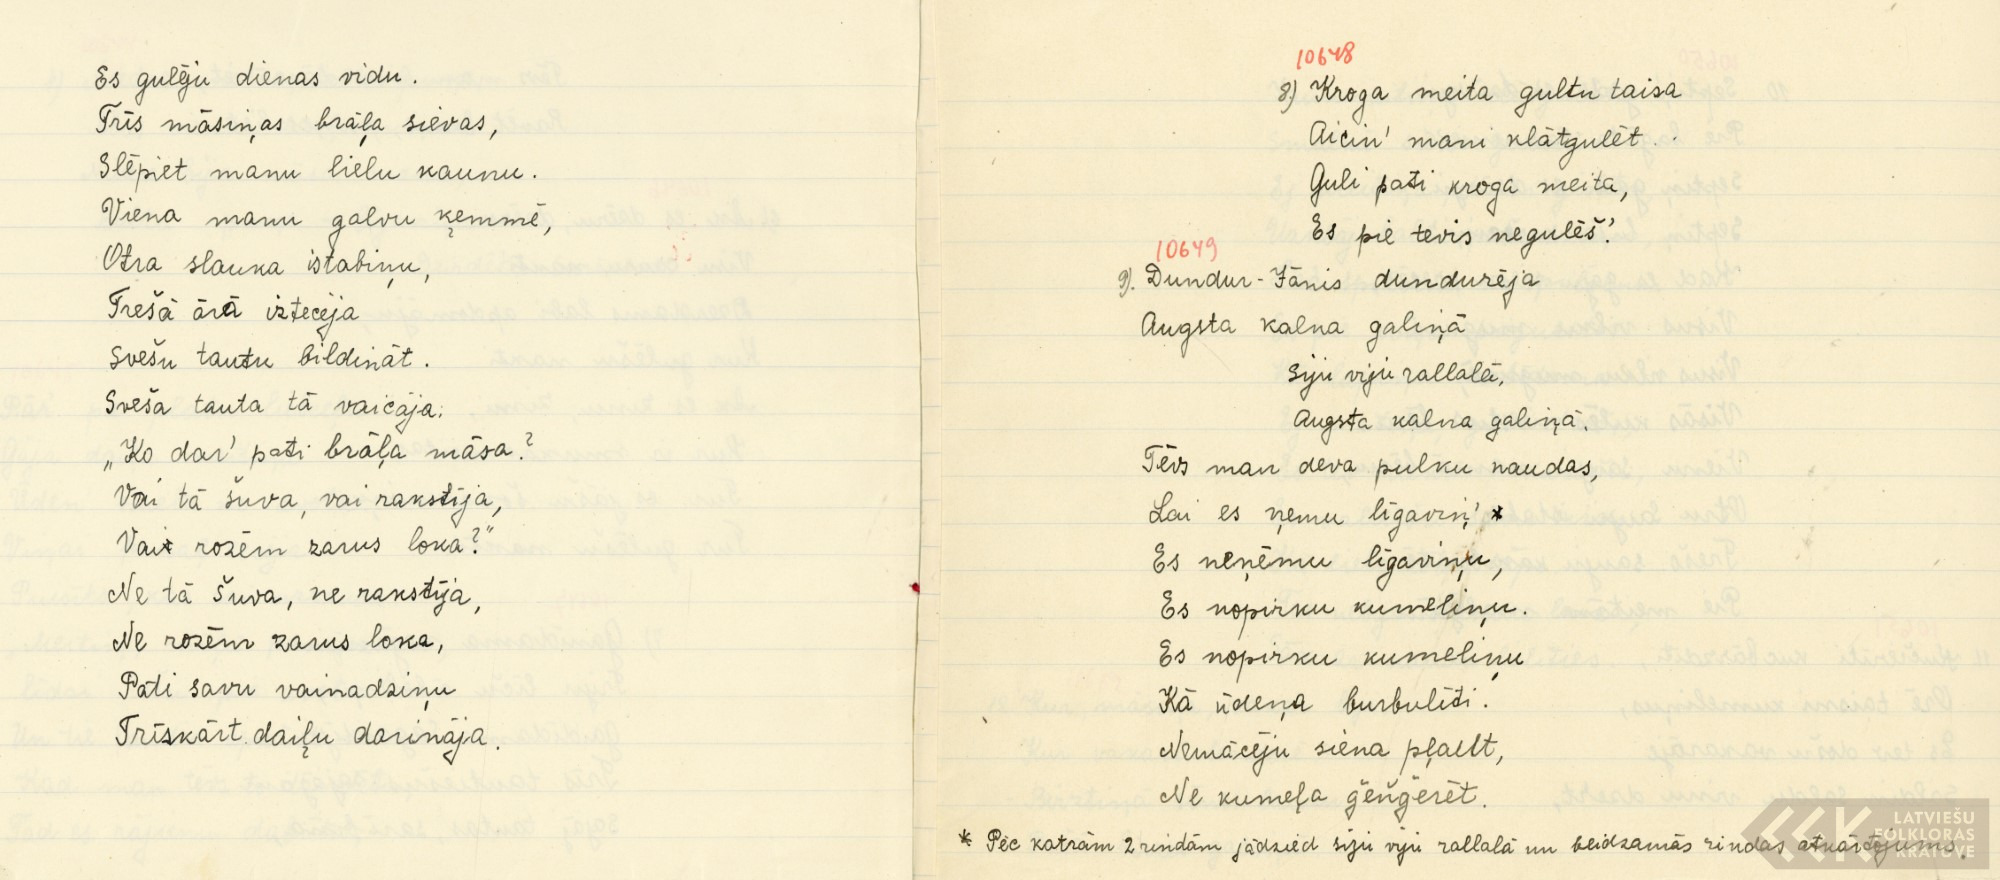 Es gulēju dienas vidu.
Trīs māsiņas brāļa sievas,
Slēpiet manu lielu kaunu.
Viena manu galvu ķemmē,
Otra slauka istabiņu,
Trešā ārā iztecēja
Svešu tautu bildināt.
Sveša tauta tā vaicāja:
„Ko dar' pati brāļa māsa?
Vai tā šuva, vai rakstīja,
Vai rozēm zarus loka?“
Ne tā šuva, ne rakstīja,
Ne rozēm zarus loka,
Pati savu vainadziņu
Trīskārt daiļu darināja.
10648
8) Kroga meita gultu taisa
Aicin' mani klātgulēt..
Guli pati kroga meita,
Es pie tevis negulēš'.
10649
9). Dundur-Jānis dundurēja
Augsta kalna galiņā
Siju viju rallalā,
Augsta kalna galiņā.
Tēvs man deva pulku naudas,
Lai es ņemu līgaviņ' *
Es neņēmu līgaviņu,
Es nopirku kumeliņu.
Es nopirku kumeliņu
Kā ūdeņa burbulīti.
Nemācēju siena pļaut,
Ne kumeļa ģeņģerēt.
* Pēc katrām 2 rindām jādzied siju viju rallalā un beidzamās rindas atkārtojums.
LATVIEŠU
FOLKLORAS
KRĀTUVE